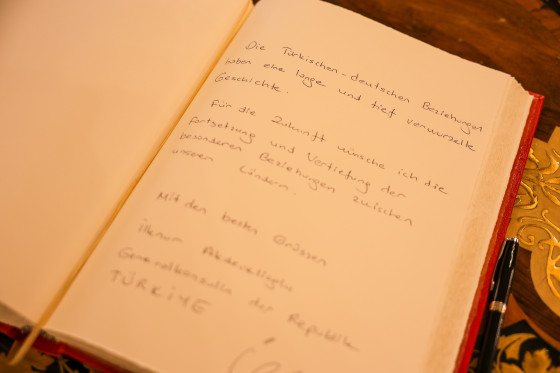 Die Türkischen-deutschen Beziehungen
haben eine lange und tief verwurzelte
Geschichte.
Für die Zukunft wünsche ich die
Fortsetzung und Vertiefung der
besonderen Beziehungen zwischen
unseren Ländern.
Mit den besten Grüssen
ilknur
Generalkonsulin der Republik
TÜRKİYE